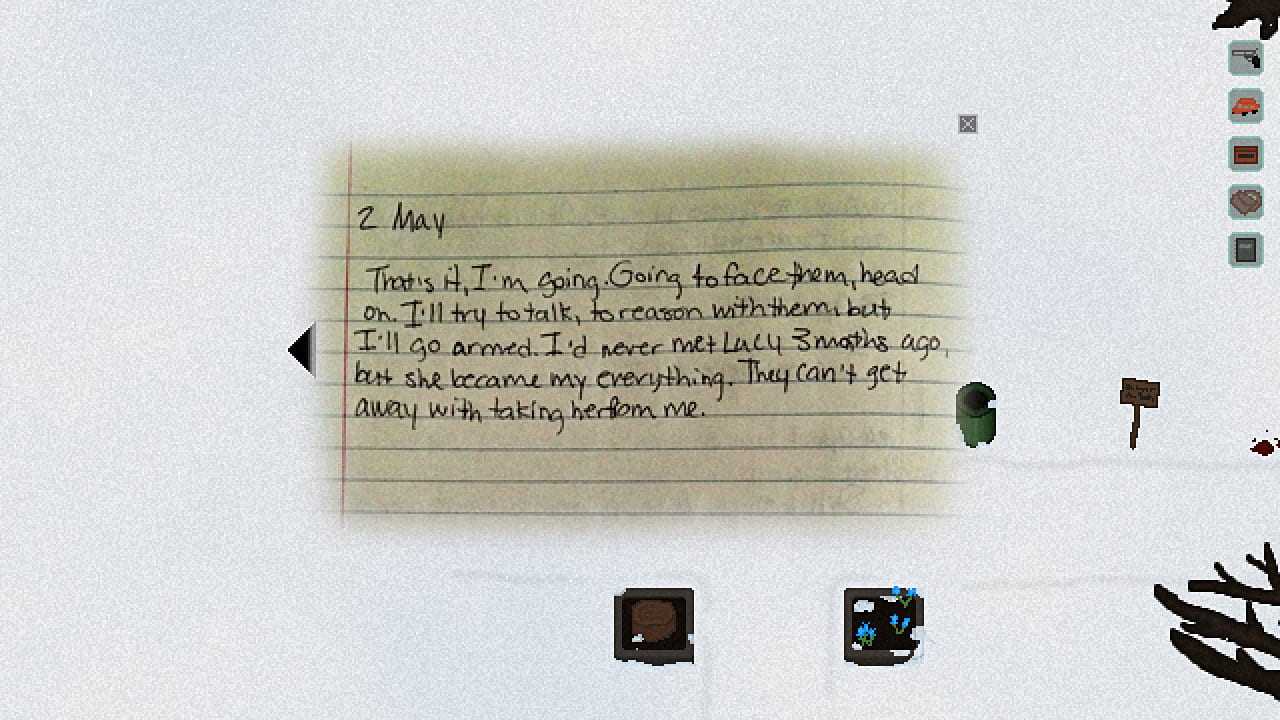 2 May
That's it, I'm going. Going to face them, head
on. I'll try to talk, to reason with them, but
I'll go armed. I'd never met Lucy 3 moths ago,
but she became my everything. They can't get
away with taking her from me.